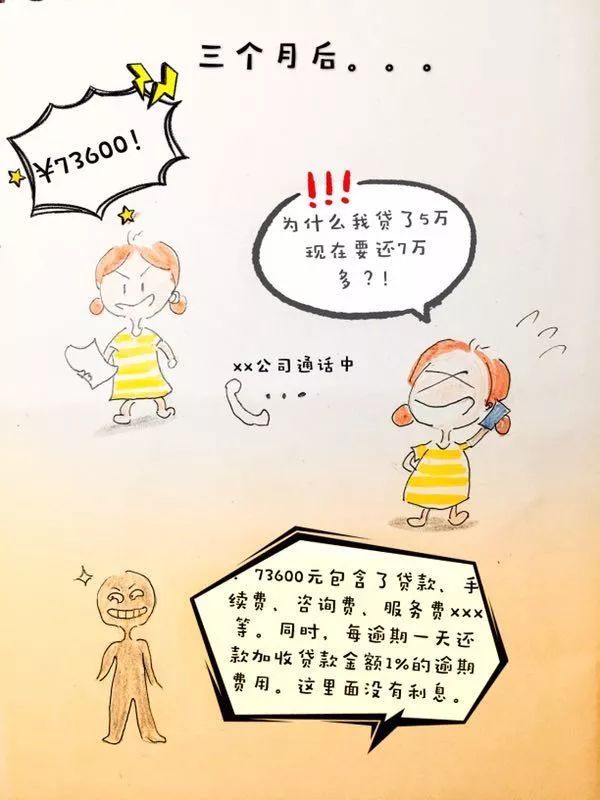 三个月后。。。
¥73600!
!!!
为什么我贷了5万
现在要还7万
多?!
xx公司通话中
...
. 73600元包含了贷款、手
续费、咨询费、服务费xxx
等。同时，每逾期一天还
款加收贷款金额1%的逾期
费用。这里面没有利息。